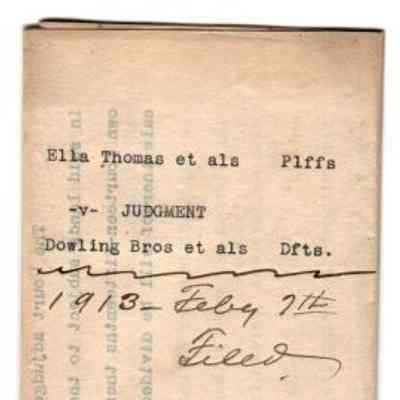 Ella Thomas et als Plffs
-v- JUDGMENT
Dowling Bros et als Dfts.
1913 - Feby 7th
Filed